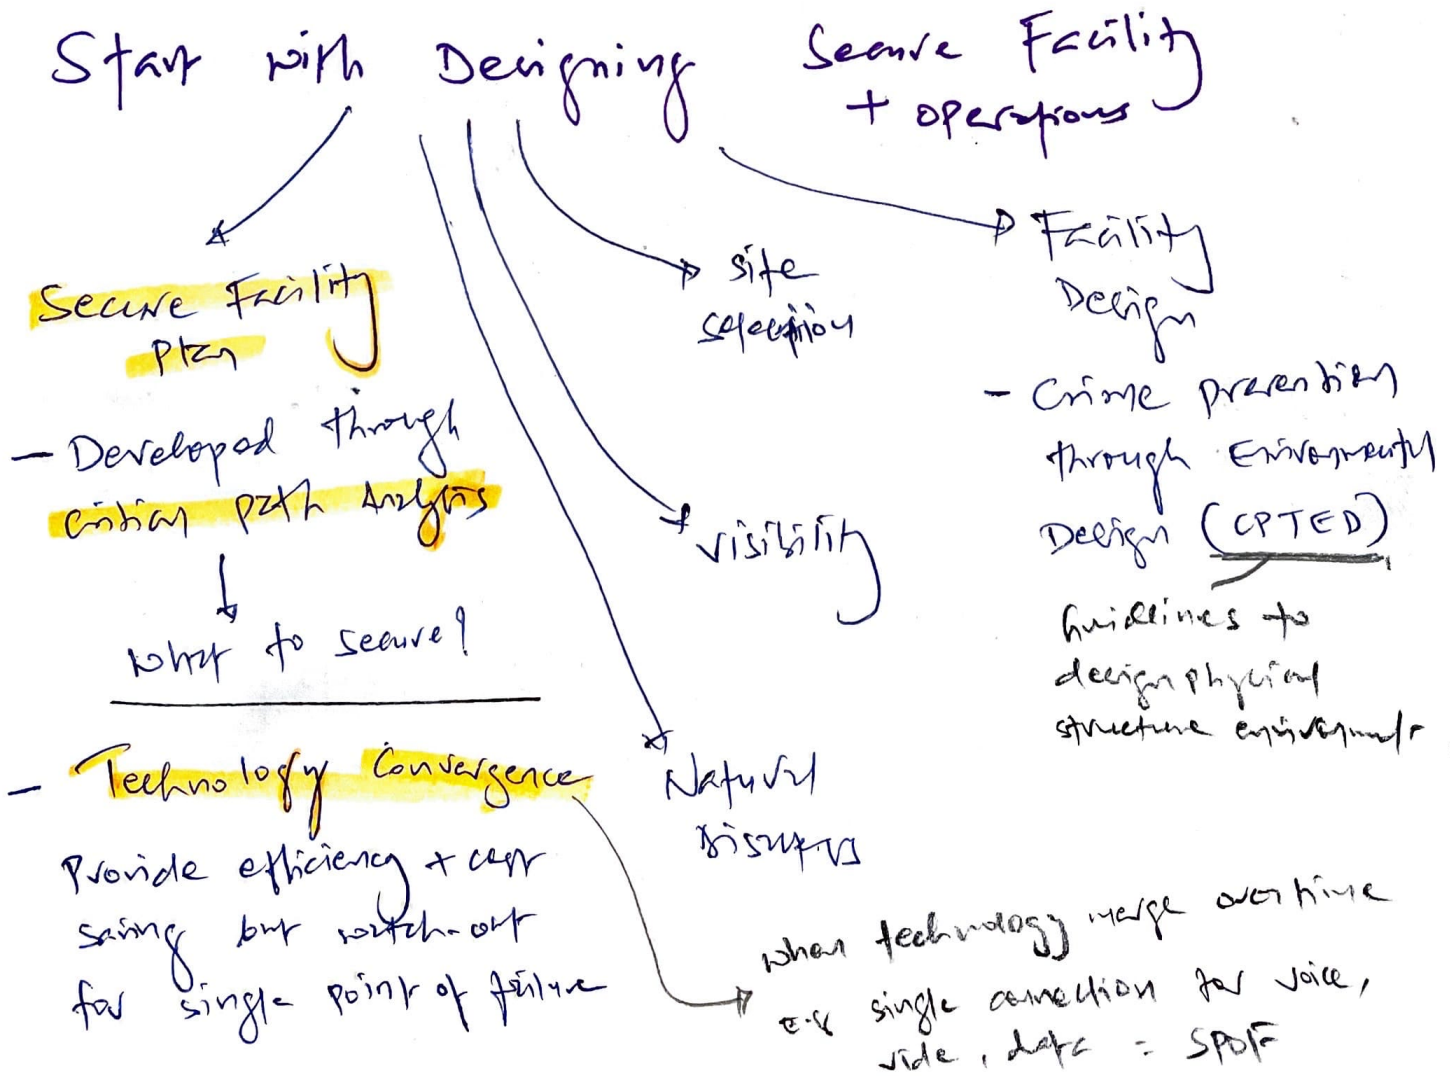 Start with Designing Secure Facility
+ operations
Secure Facility
Plan
- Developed through
critical path Analysis
what to secure?
- Technology Convergence
Provide efficiency + cost
saving but watch-out
for single point of failure
site
selection
visibility
Natural
Disasters
Facility
Design
- Crime prevention
through Environmental
Design (CPTED)
Guidlines to
design physical
structure environment
when technology merge overtime
E.g single connection for voice,
vide, data = SPOF